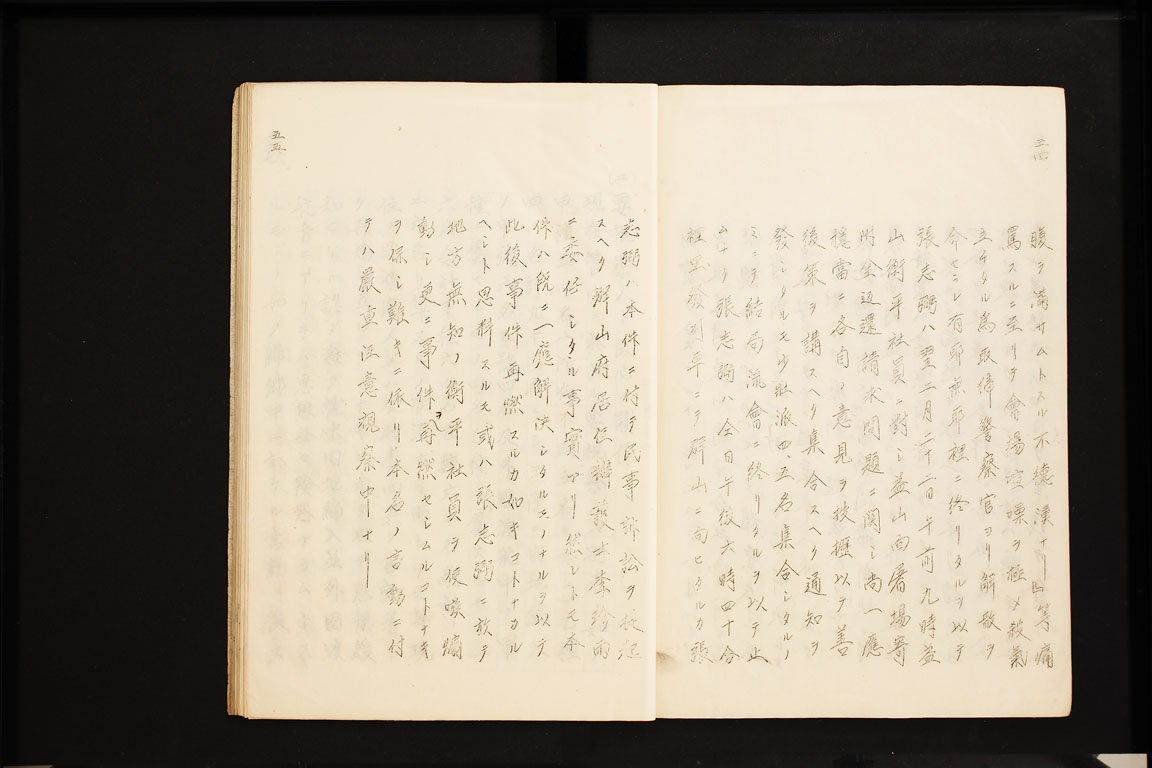 腹ヲ満サムトスル不徳漢ナリ』等痛
罵スルニ至リテ會場喧噪ヲ極メ殺氣
立チタル為取締警察官ヨリ解散ヲ
命セラレ有耶無耶裡ニ終リタルヲ以テ
張志弼ハ翌二月二十二日午前九時益
山衡平社員ニ對シ益山向署場寄
附金返還請求問題ニ関シ尚一應
穏當ニ各自ノ意見ヲ披攊以テ善
後策ヲ講スヘク集合スヘク通知ヲ
發シタルモ少壮派四、五名集合シタルノ
ミニテ結局流會ニ終リタルヲ以テ止
ムナク張志弼ハ仝日午後六時四十分
裡里發列車ニテ群山ニ向ヒタルカ張
志弼ハ本件ニ付テ民事訴訟ヲ提起
スヘク群山府居住辯護士李珍雨
ニ委任シタル事實アリ然レトモ本
件ハ既ニ一應解決シタルモノナルヲ以テ
此後事件再燃スルカ如キコトナカル
ヘシト思料スルモ或ハ張志弼ニ於テ
地方無知ノ衡平社員ヲ使嗾煽
動シ更ニ事件ヲ再燃セシムルコトナキ
ヲ保シ難キニ依リ本名ノ言動ニ付
テハ嚴重注意視察中ナリ
五五